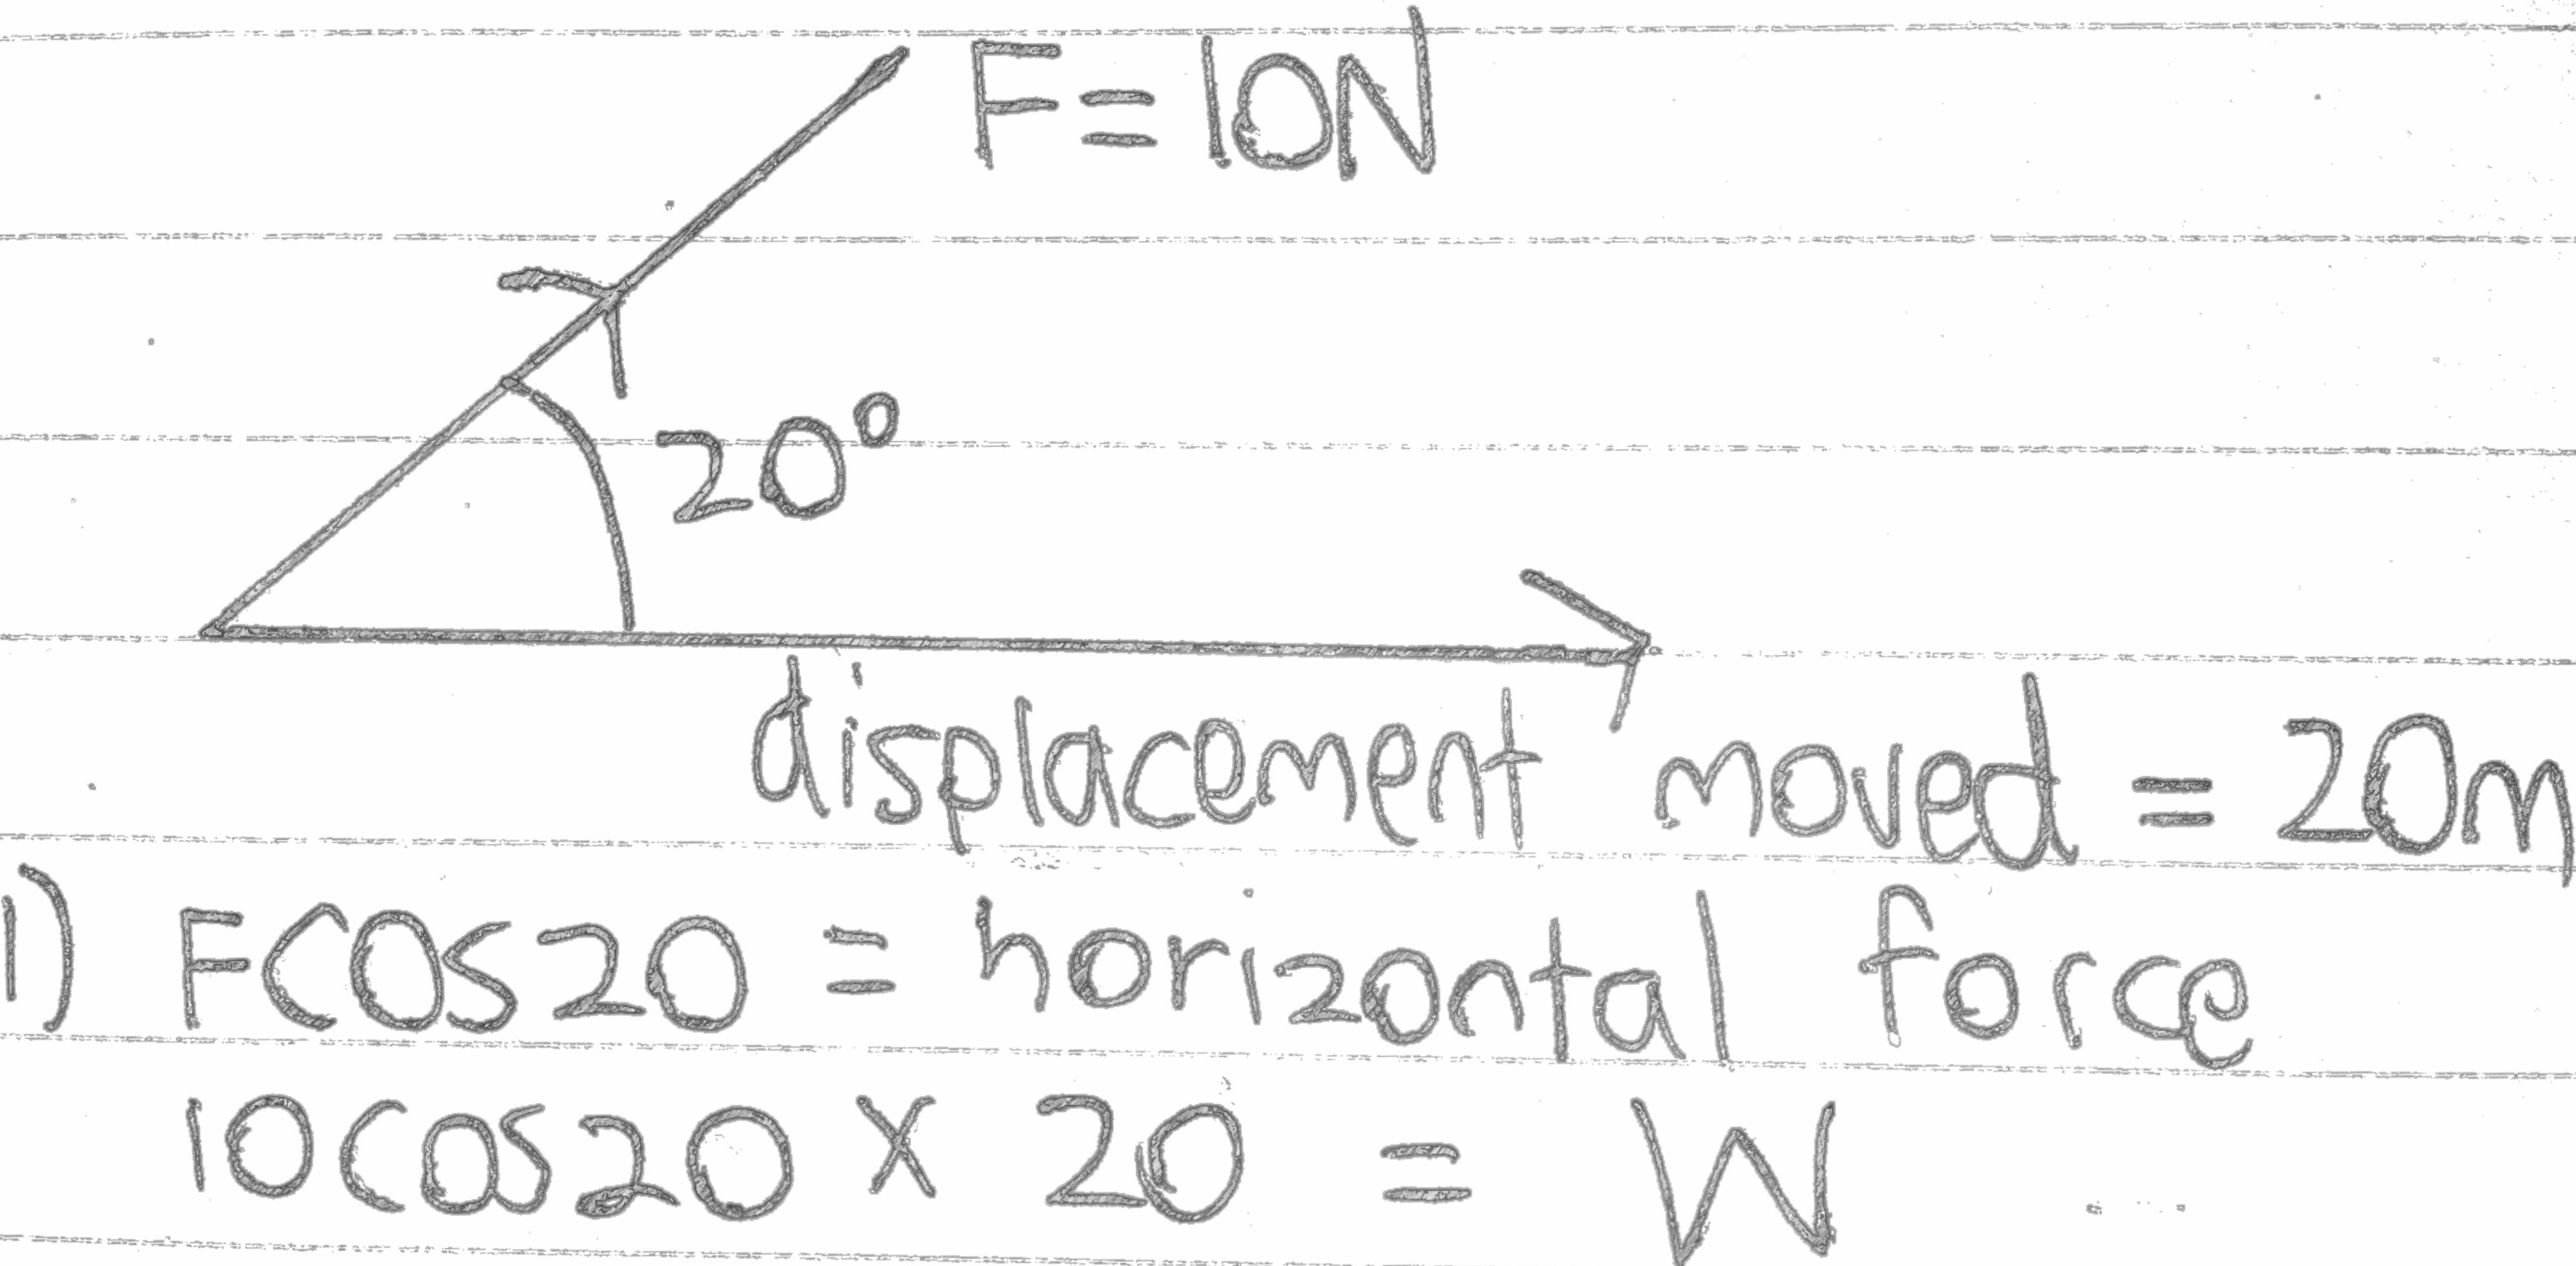 F=10N
20°
displacement moved = 20m
1) Fcos20 = horizontal force
10cos20 × 20 = W